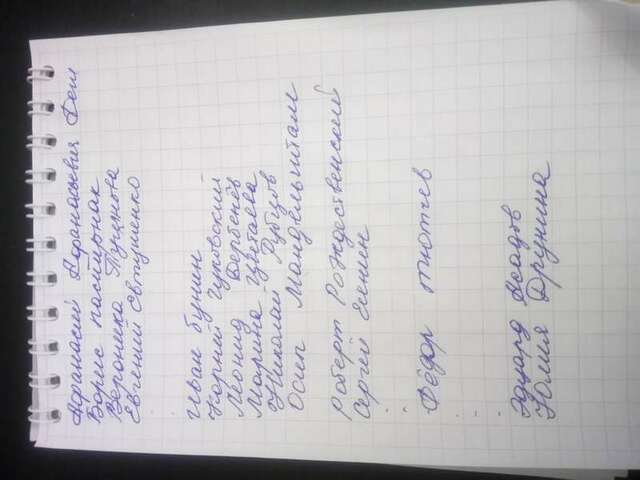 Афанасий Афанасьевич Фет
Борис пастернак
Вероника Тушнова
Евгений Евтушенко
Иван бунин
Корней Чуковский
Леонид Дербенёв
Марина Цветаева
Николай Рубцов
Осип Мандельштам
Роберт Рождественский
Сергей Есенин
Фёдор тютчев
Эдуард Асадов
Юлия Друнина